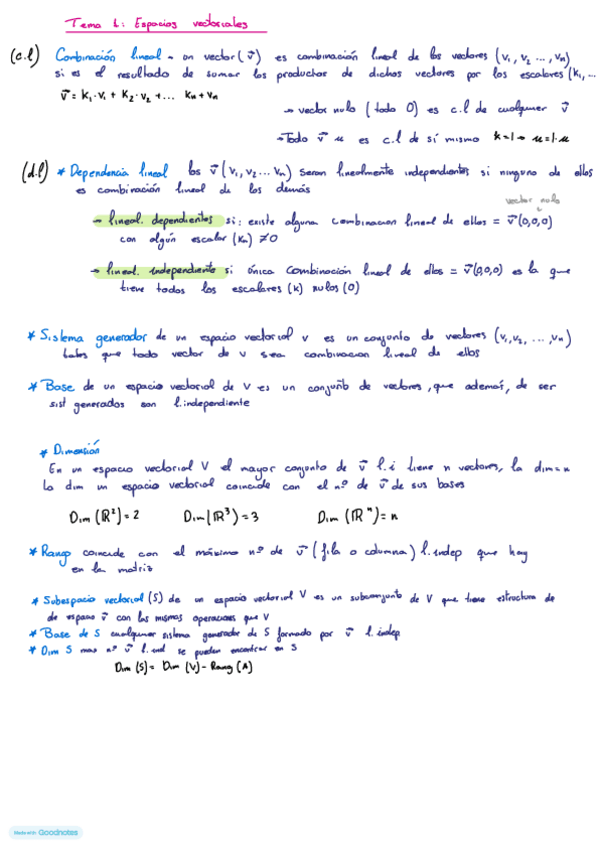 Tema 1: Espacios vectoriales
(c.l) Combinación lineal - un vector (v⃗) es combinación lineal de los vectores (v₁, v₂ ..., vₙ)
si es el resultado de sumar los productos de dichos vectores por los escalares (k₁, ...
v⃗ = k₁·v₁ + k₂·v₂ + ... kₙ+vₙ
→ vector nulo (todo 0) es c.l de cualquier v⃗
→ Todo v⃗ u es c.l de sí mismo k=1 → u=1·u
(d.l) * Dependencia lineal los v⃗ (v₁, v₂ ... vₙ) seran linealmente independientes si ninguno de ellos
es combinación lineal de los demás
vector nulo
→ lineal. dependientes si: existe alguna combinacion lineal de ellos = v⃗(0,0,0)
con algún escalar (kₙ) ≠ 0
→ lineal. independiente si única combinación lineal de ellos = v⃗(0,0,0) es la que
tiene todos los escalares (k) nulos (0)
* Sistema generador de un espacio vectorial v es un conjunto de vectores (v₁, v₂, ..., vₙ)
tales que todo vector de v sea combinacion lineal de ellos
* Base de un espacio vectorial de V es un conjunto de vectores, que además, de ser
sist generados son l.independiente
* Dimensión
En un espacio vectorial V el mayor conjunto de v⃗ l.i tiene n vectores, la dim=n
La dim un espacio vectorial coincide con el nº de v⃗ de sus bases
Dim (ℝ²) = 2 Dim(ℝ³) = 3 Dim (ℝⁿ) = n
* Rango coincide con el máximo nº de v⃗ (fila o columna) l.indep que hay
en la matriz
* Subespacio vectorial (S) de un espacio vectorial V es un subconjunto de V que tiene estructura de
de espacio v⃗ con las mismas operaciones que V
* Base de S cualquier sistema generador de S formado por v⃗ l.indep
* Dim S max nº v⃗ l.ind se pueden encontrar en S
Dim (S) = Dim (V) - Rang (A)
Made with Goodnotes